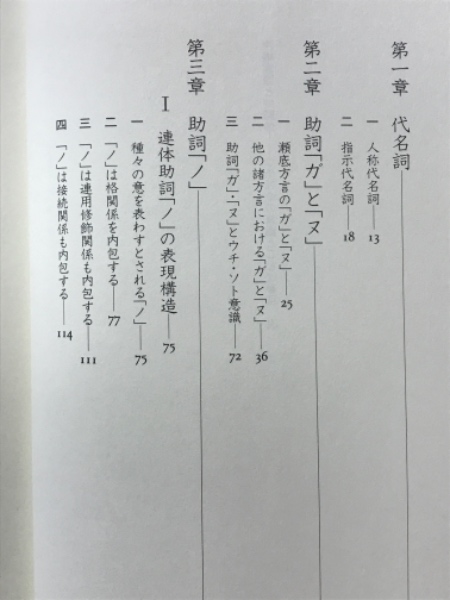 第一章 代名詞
一 人称代名詞——13
二 指示代名詞——18
第二章 助詞「ガ」と「ヌ」
一 瀬底方言の「ガ」と「ヌ」——25
二 他の諸方言における「ガ」と「ヌ」——36
三 助詞「ガ」・「ヌ」とウチ・ソト意識——72
第三章 助詞「ノ」
I 連体助詞「ノ」の表現構造——75
一 種々の意を表わすとされる「ノ」——75
二 「ノ」は格関係を内包する——77
三 「ノ」は連用修飾関係も内包する——111
四 「ノ」は接続関係も内包する——114